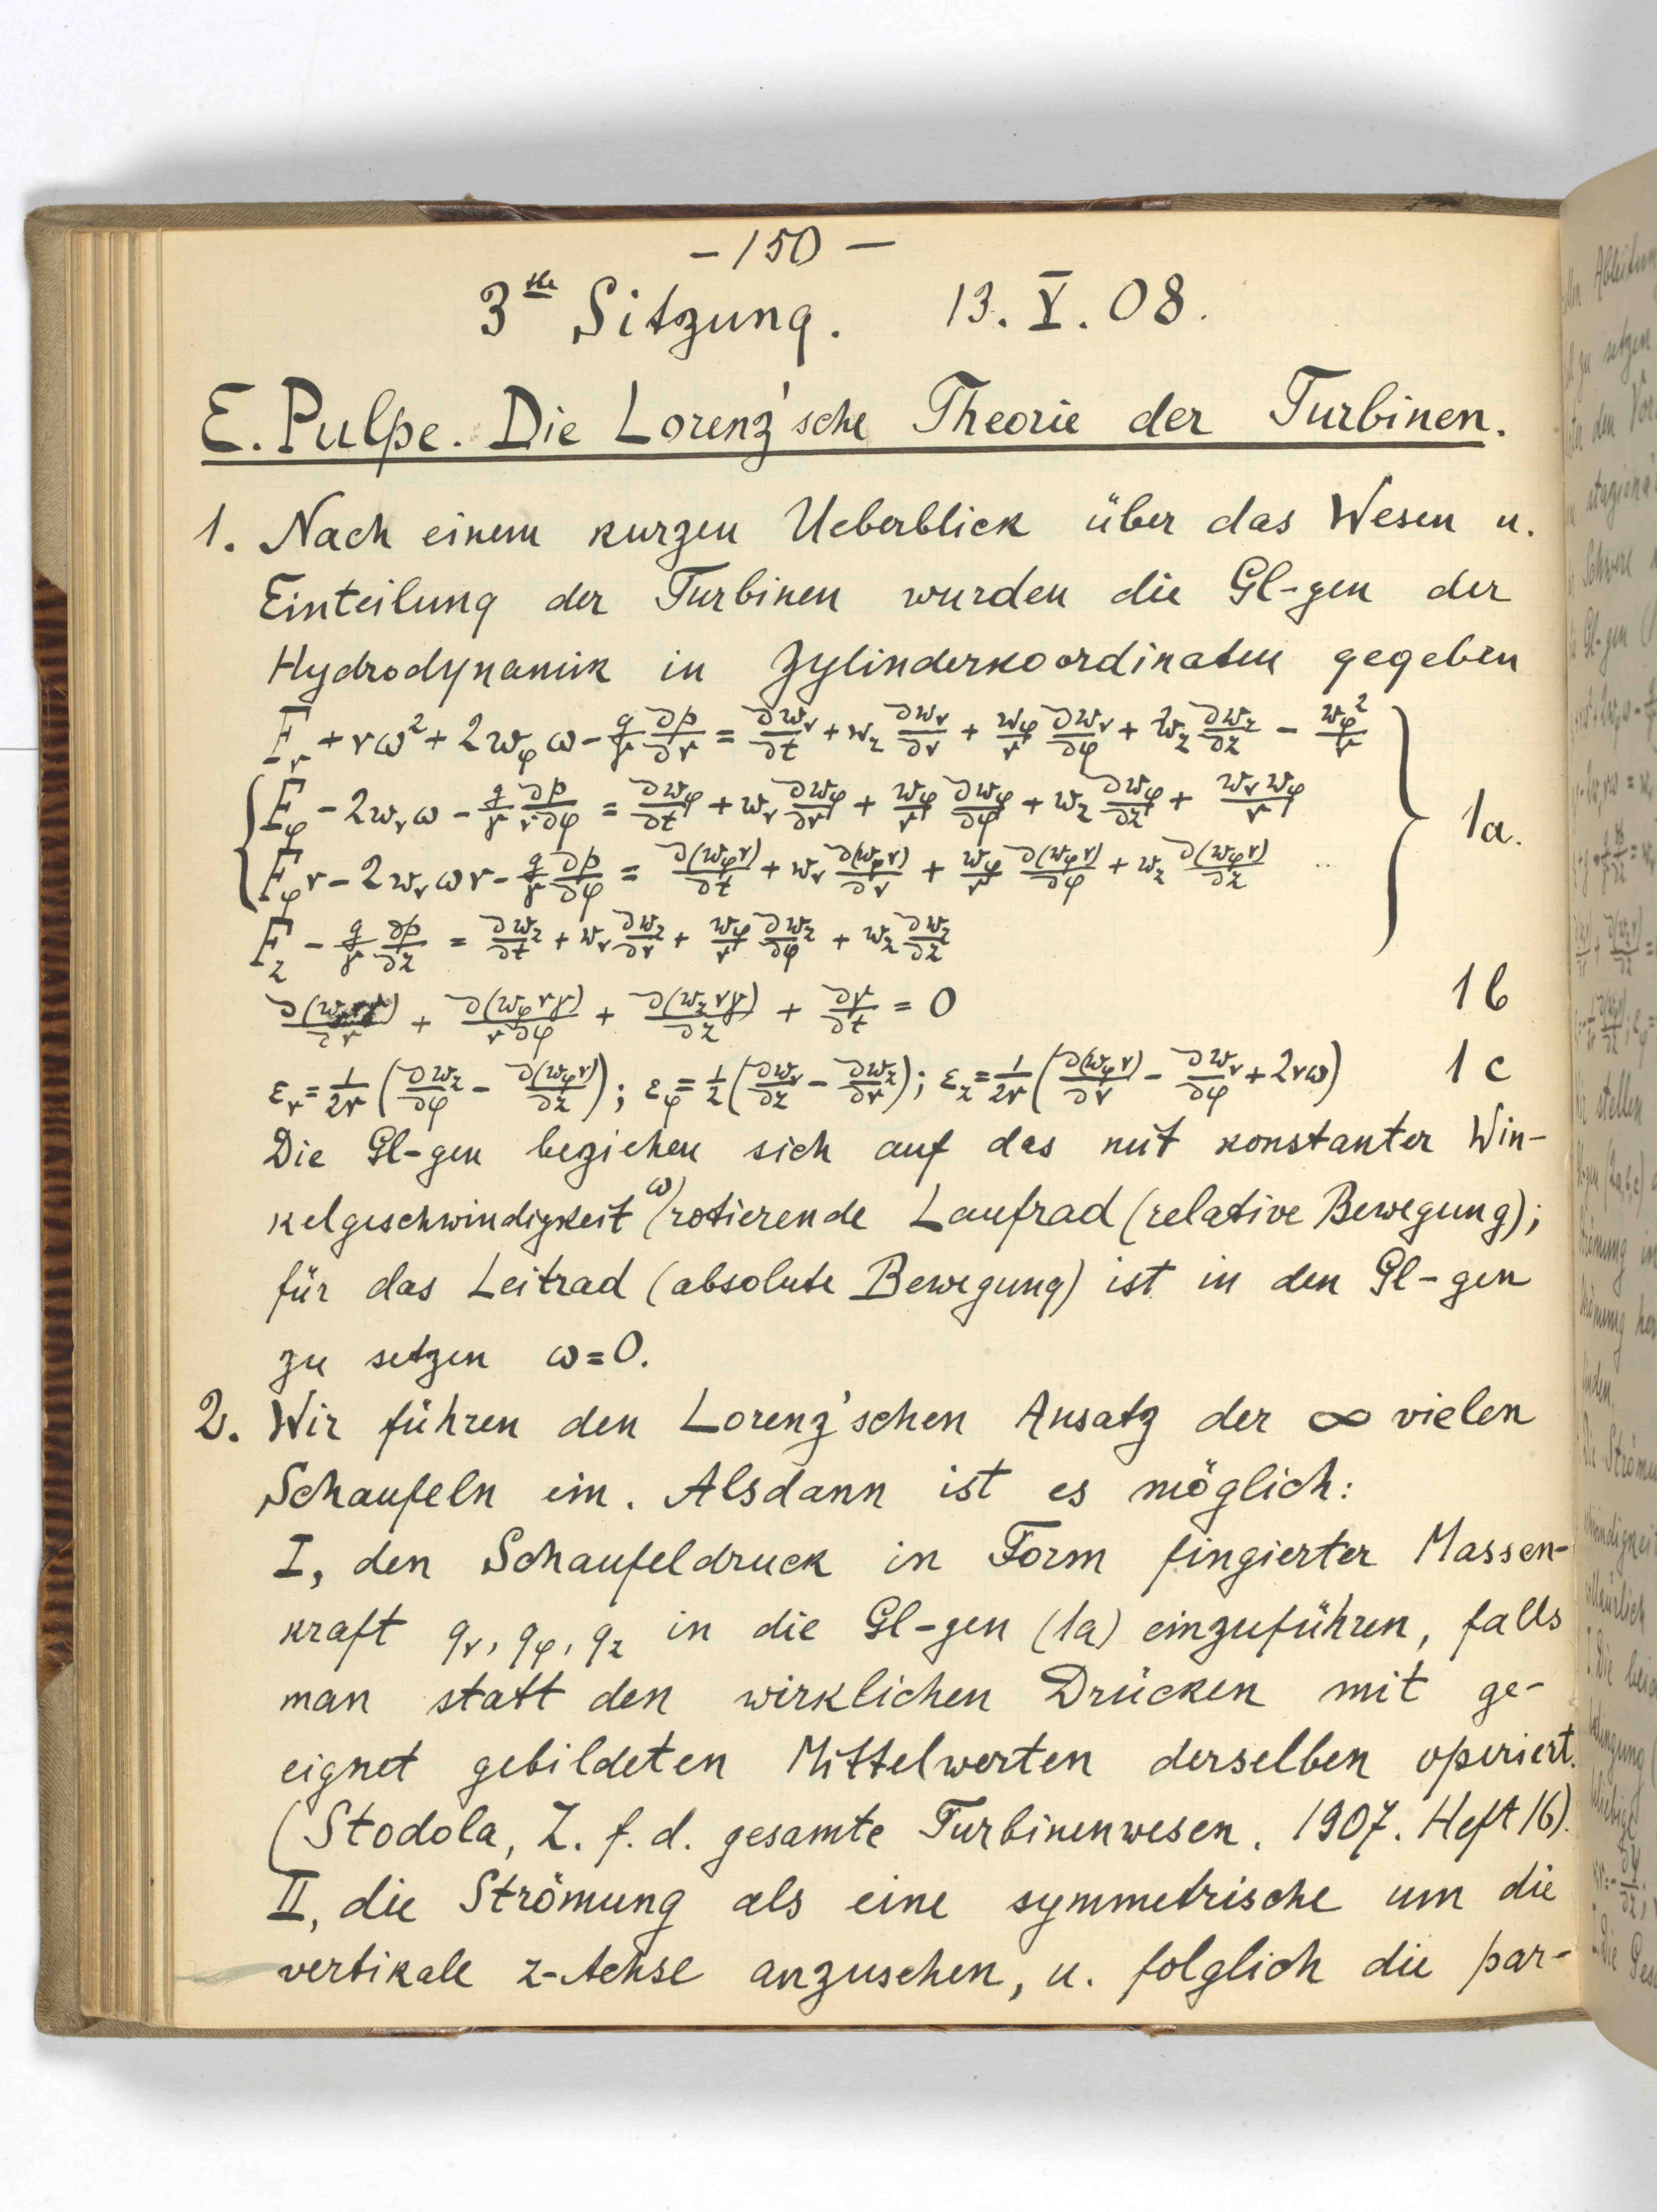 – 150 –
3te Sitzung. 13. V. 08.
E. Pulpe. Die Lorenz'sche Theorie der Turbinen.
1. Nach einem kurzen Ueberblick über das Wesen u.
Einteilung der Turbinen wurden die Gl-gen der
Hydrodynamik in Zylinderkoordinaten gegeben
F_r + rω² + 2w_φ ω − g/γ ∂p/∂r = ∂w_r/∂t + w_z ∂w_r/∂r + w_φ/r ∂w_r/∂φ + w_z ∂w_z/∂z − w_φ²/r
F_φ − 2w_r ω − g/γ ∂p/r∂φ = ∂w_φ/∂t + w_r ∂w_φ/∂r + w_φ/r ∂w_φ/∂φ + w_z ∂w_φ/∂z + w_r w_φ/r 1a.
F_φ r − 2w_r ωr − g/γ ∂p/∂φ = ∂(w_φ r)/∂t + w_r ∂(w_φ r)/∂r + w_φ/r ∂(w_φ r)/∂φ + w_z ∂(w_φ r)/∂z
F_z − g/γ ∂p/∂z = ∂w_z/∂t + w_r ∂w_z/∂r + w_φ/r ∂w_z/∂φ + w_z ∂w_z/∂z
∂(w_r rγ)/∂r + ∂(w_φ rγ)/r∂φ + ∂(w_z rγ)/∂z + ∂γ/∂t = 0 1b
ε_r = 1/2r (∂w_z/∂φ − ∂(w_φ r)/∂z); ε_φ = 1/2 (∂w_r/∂z − ∂w_z/∂r); ε_z = 1/2r (∂(w_φ r)/∂r − ∂w_r/∂φ + 2rω) 1c
Die Gl-gen beziehen sich auf das mit konstanter Win-
kelgeschwindigkeit ω rotierende Laufrad (relative Bewegung);
für das Leitrad (absolute Bewegung) ist in den Gl-gen
zu setzen ω = 0.
2. Wir führen den Lorenz'schen Ansatz der ∞ vielen
Schaufeln ein. Alsdann ist es möglich:
I, den Schaufeldruck in Form fingierter Massen-
kraft q_r, q_φ, q_z in die Gl-gen (1a) einzuführen, falls
man statt den wirklichen Drücken mit ge-
eignet gebildeten Mittelwerten derselben operiert.
(Stodola, Z. f. d. gesamte Turbinenwesen. 1907. Heft 16).
II, die Strömung als eine symmetrische um die
vertikale z-Achse anzusehen, u. folglich die par-